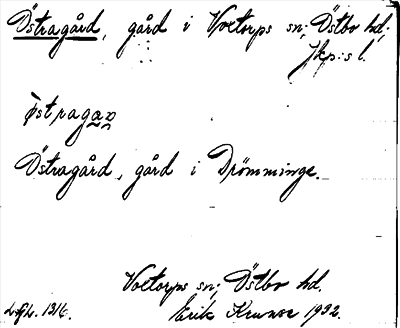 Östragård, gård i Voxtorps sn; Östbo hd;
Jkp:s l.
östragaɷ
Östragård, gård i Drömminge.
Voxtorps sn; Östbo hd.
LGL. 1316. Erik Kruuse 1932.